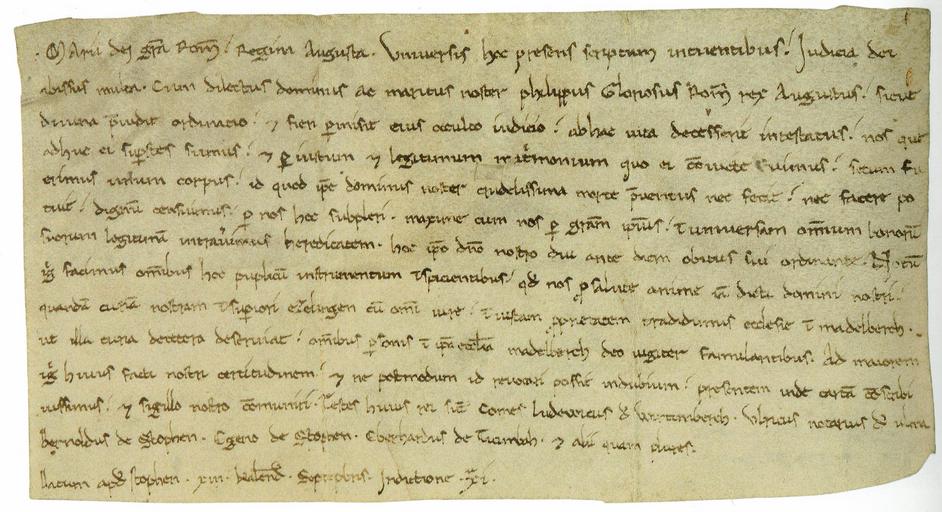 Maria dei gr̃a Rom̃ · Regina Augusta · Universis hoc presens scriptum intuentibus · Iudicia dei
abissus multa · Cum dilectus dominus ac maritus noster phylippus Gloriosus Rom̃ rex Augustus · sicut
divina p̃vidit ordinatio · ⁊ fieri p̱misit eius occulto iudicio · ab hac vita decesserit intestatus · nos que
adhuc ei sup̱stites sumus · ⁊ p̱ iustum ⁊ legitimum mat̃monium quo ei secum fu
erimus unum corpus · id quod ip̃e dominus noster crudelissima morte p̃ventus nec fecit · nec facere po
tuit · dignũ censuimus · p̱ nos hoc subpleri · maxime cum nos p̱ gr̃am ip̃ius · ĩ universam om̃ium bonorũ
suorum legitimã intraverimus hereditatem · hoc ip̃o dñо nostro diu ante diem obitus sui ordinante · Notũ
igr̃ facimus om̃ibus hoc puplicũ instrumentum ĩspicientibus · qd̃ nos p̱ salute anime dicti domini nostri ·
quandã curiã nostram ĩ sup̱iori ezelingen cũ om̃i iure · ĩ iustam pp̱rietatem tradidimus ecclesie ĩ madelberch ·
ut illa curia decetero deserviat · om̃ibus p̱sonis ĩ ip̃a eccl̃ia madelberch deo iugiter famulantibus · Ad maiorem
igr̃ huius facti nostri certitudinem · ⁊ ne postmodum id revocari possit in dubium · presentem inde cartã cõscribi
iussimus · ⁊ sigillo nostro cõmuniri · Testes huius rei sũt Comes Ludewicus de Wirtimberch · Ulricus notarius
Bernoldus de Stophen · Egeno de Stophen · Eberhardus de · ⁊ alii quam plures ·
Datum apd̃ Stophen · xiii · kalend̃ · Septembris · Indictione · xi ·